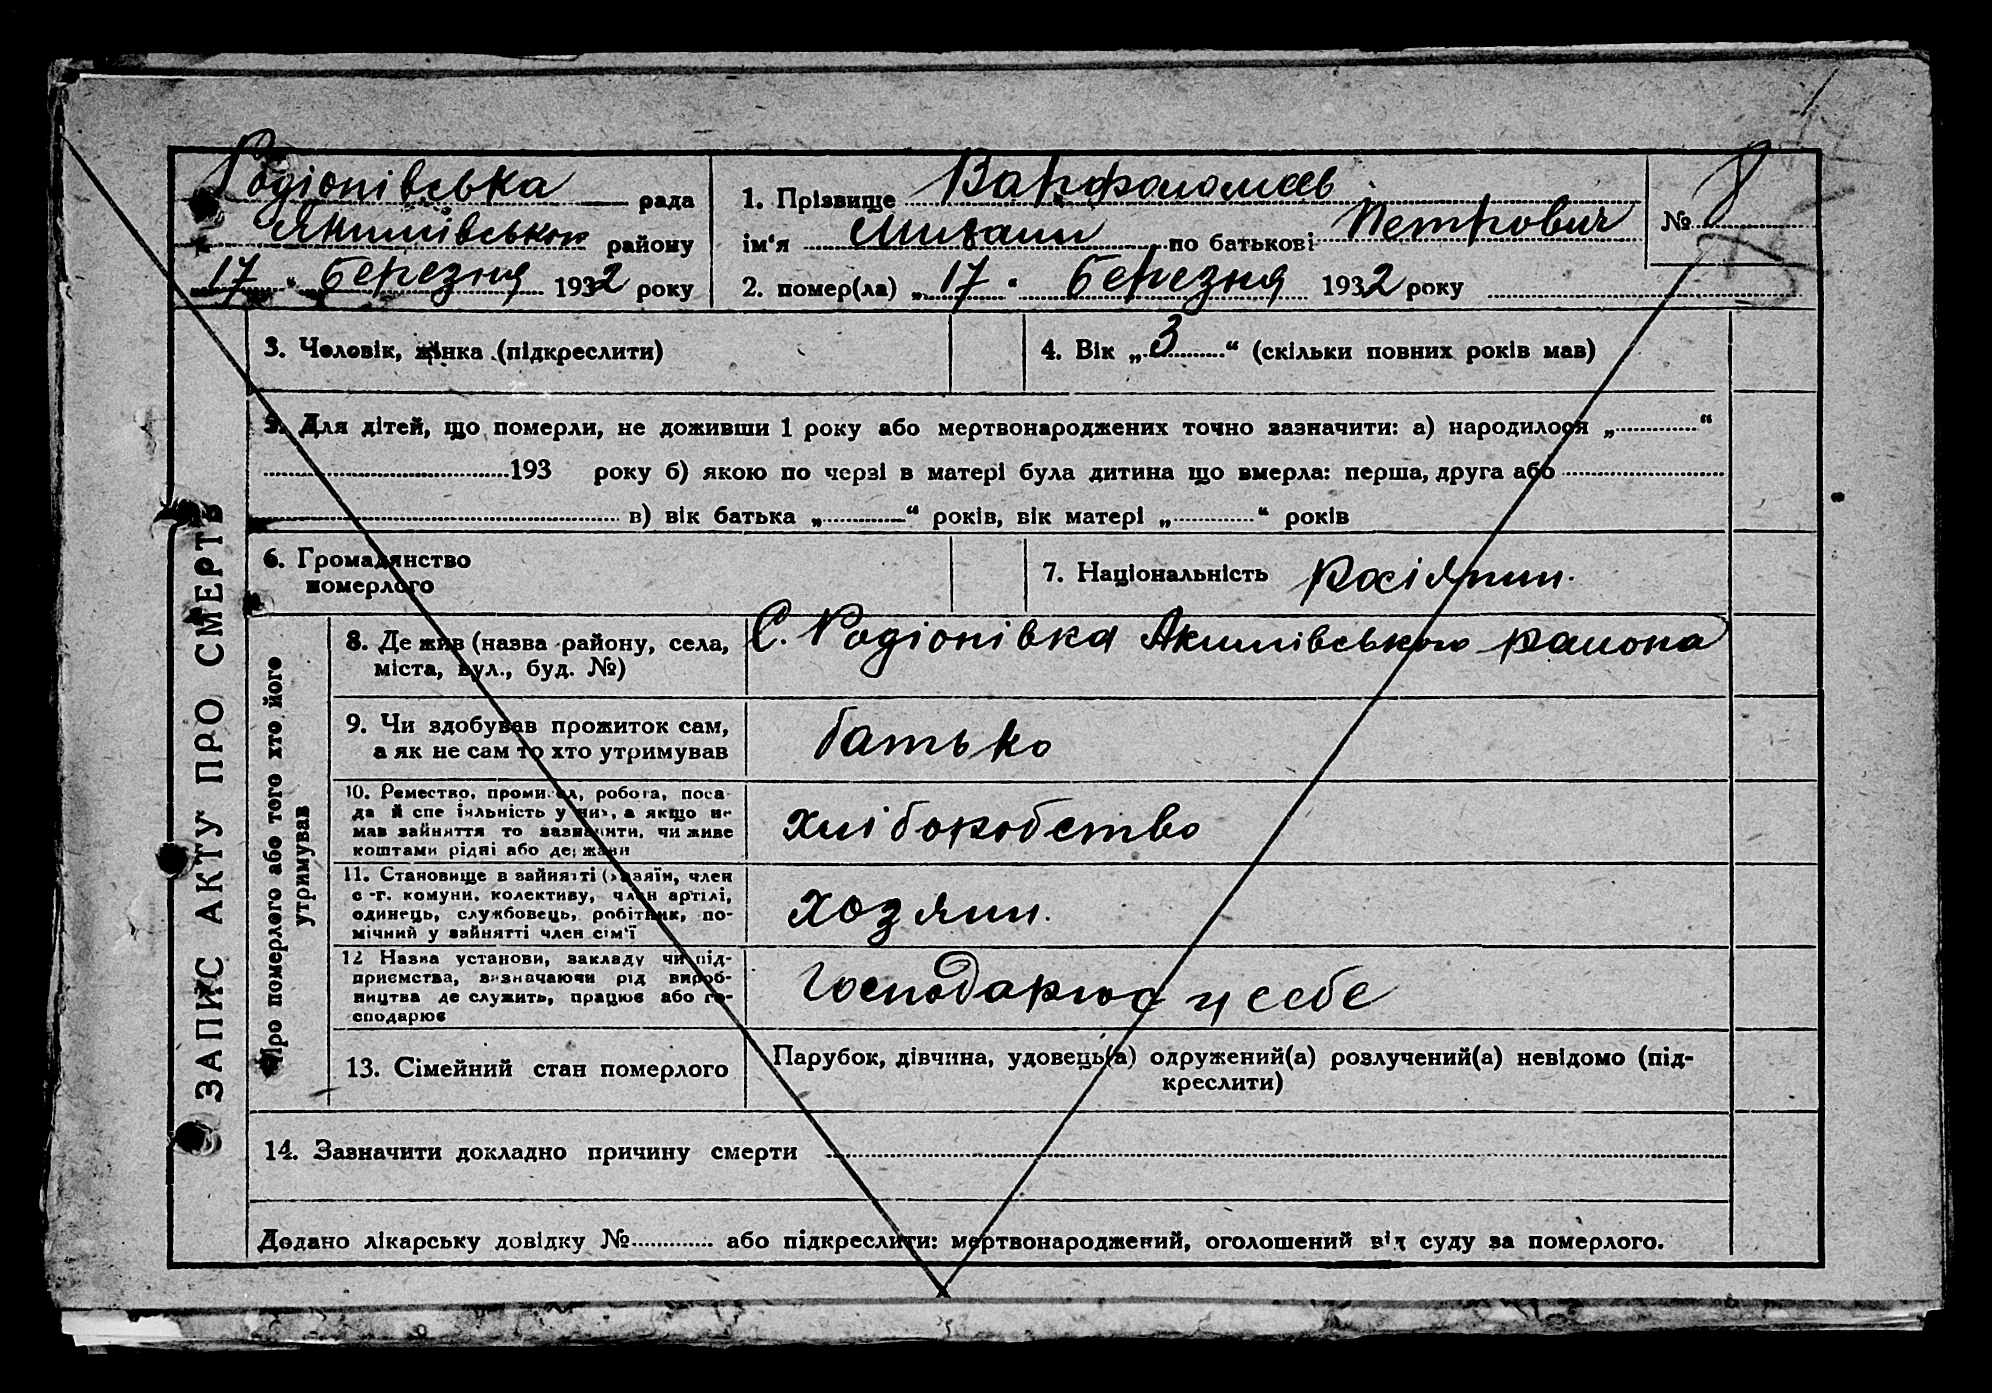 Родіонівська рада
Якимівського району
17 " березня 1932 року
1. Прізвище Варфоломєєв
ім'я по батькові Петрович
№ 8
2. помер(ла) „17" березня 1932 року
3. Чоловік, жінка (підкреслити)
4. Вік „3" (скільки повних років мав)
5. Для дітей, що померли, не доживши 1 року або мертвонароджених точно зазначити: а) народилося „ “
193 року б) якою по черзі в матері була дитина що вмерла: перша, друга або
в) вік батька „ “ років, вік матері „ “ років
6. Громадянство
померлого
7. Національність росіянин.
ЗАПИС АКТУ ПРО СМЕРТЬ
Про померлого або того хто його
утримував
8. Де жив (назва району, села,
міста, вул., буд. №)
С. Родіонівка Якимівського района
9. Чи здобував прожиток сам,
а як не сам то хто утримував
батько
10. Ремество, промисел, робота, поса-
да й спеціяльність у них, а якщо не
мав зайняття то зазначити, чи живе
коштами рідні або держави
хліборобство
11. Становище в зайнятті (хазяїн, член
с.-г. комуни, колективу, член артілі,
одинець, службовець, робітник, по-
мічний у зайнятті член сім'ї
хозяин.
12 Назва установи, закладу чи під-
приємства, визначаючи рід вироб-
ництва де служить, працює або го-
сподарює
Господарює у себе
13. Сімейний стан померлого
Парубок, дівчина, удовець(а) одружений(а) розлучений(а) невідомо (під-
креслити)
14. Зазначити докладно причину смерти
Додано лікарську довідку № або підкреслити: мертвонароджений, оголошений від суду за померлого.